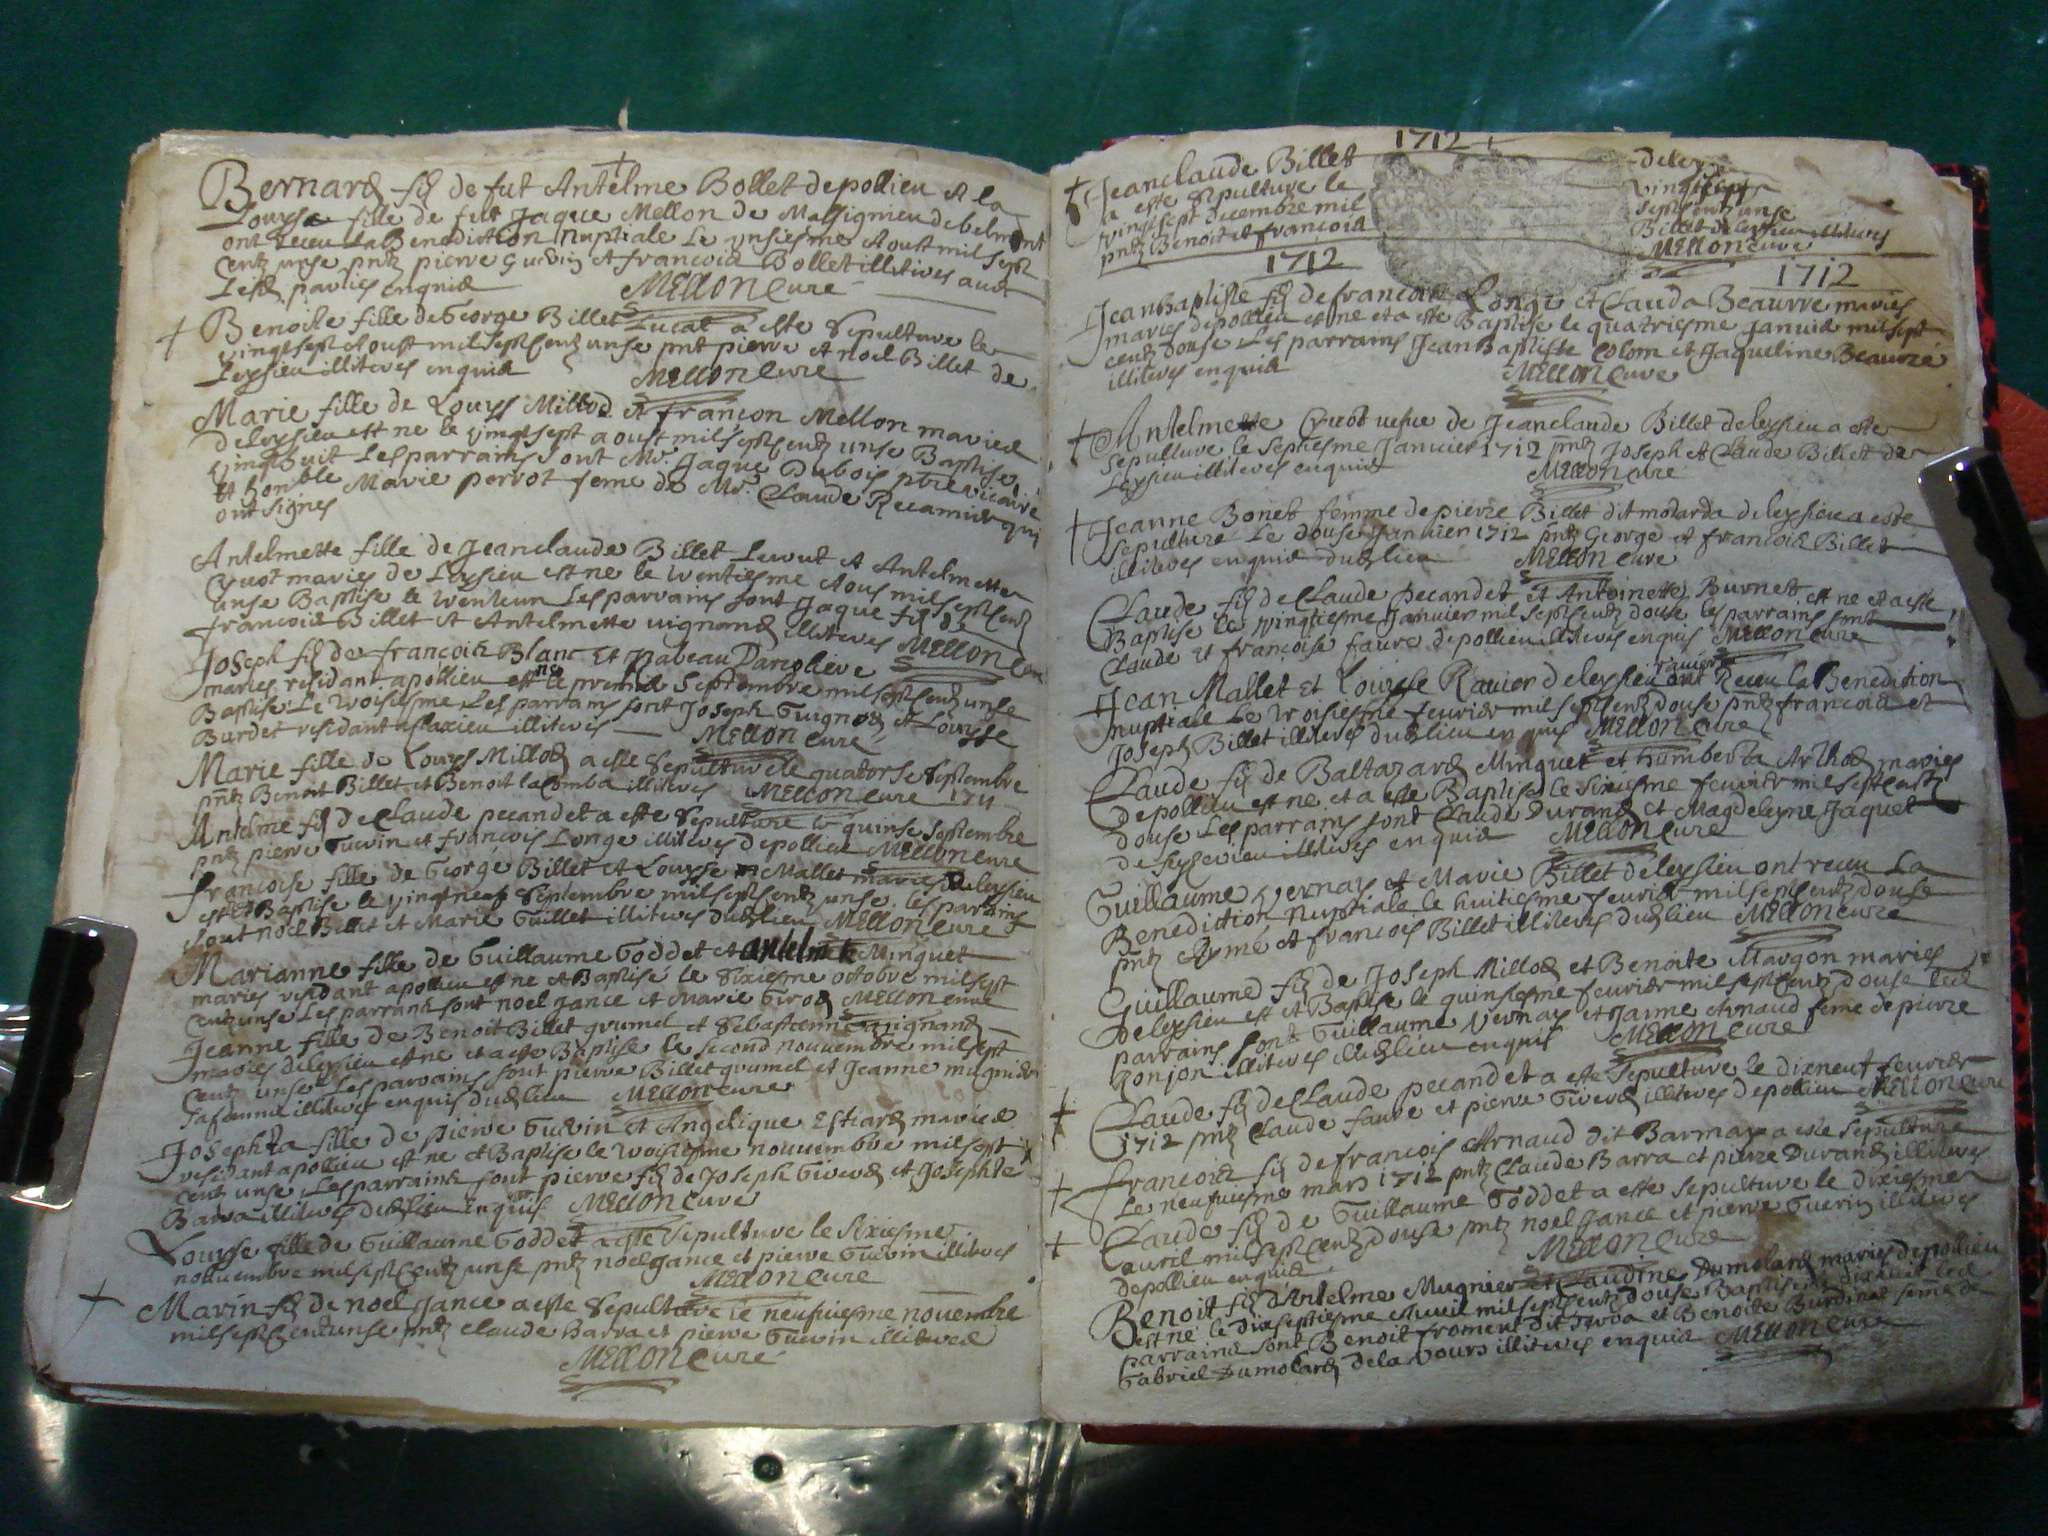 Bernard fils de fut Antelme Bollet de pollieu et la
Louyse fille de fut Jaque Mellon de Massignieu de belmont
ont receu la Benediction Nuptiale Le unsiesme Aoust mil sept
centz unse pntz pierre Guerin et francois Bollet illiteres
Lesd parties enquis
MELLON Cure
Benoite fille de George Billet Lucat a este Sepulture le
vingt sept Aoust mil sept centz unse pnt pierre et noel Billet de
Leysieu illiteres enquis
MELLON Cure
Marie fille de Louys Millod et françon Mellon maries
de leysieu est ne le vingt sept aoust mil sept centz unse Baptise
vingt huit Les parrains sont Mr. Jaque Dubois ptre vicaire
et honble Marie perrot feme de Mr. Claude Recamier qui
ont signes
Antelmette fille de Jeanclaude Billet et Antelmette
Cyuot maries de Leysieu est ne le trentiesme Aous mil sept centz
unse Baptise le trenteun Les parrains sont Jaque fils de
francois Billet et Antelmette uignand illiteres MELLON Cure
Joseph fils de francois Blanc Et ysabeau Damolieve
maries residant a pollieu est ne le premie Septembre mil sept centz unse
Baptise Le troisiesme Les parrains sont Joseph Guignod et Louyse
Burdet residant a flaxieu illiteres MELLON Cure
Marie fille de Louys Millod a este Sepulture le quatorse Septembre
pntz Benoit Billet et Benoit la Comba illiteres MELLON Cure 1711
Antelme fils de Claude pecandet a este Sepulture le quinse septembre
pntz pierre Guerin et francois Longe illiteres de pollieu MELLON Cure
francoise fille de George Billet et Louyse Mallet maries de leysieu
est et Baptise le vingt neuf Septembre mil sept centz unse les parrains
sont noel Billet et Marie Guillet illiteres dud lieu MELLON Cure
Marianne fille de Guillaume Goddet et antelmete Minquet
maries residant a pollieu est ne et Baptise le Sixiesme octobre mil sept
centz unse Les parrains sont noel Jance et Marie Girod MELLON Cure
Jeanne fille de Benoit Billet grumel et Sebastienne uignand
maries de leysieu est ne et a este Baptise le second nouuembre mil sept
centz unse Les parrains sont pierre Billet grumel et Jeanne mugnier
illiteres enquis dud lieu MELLON Cure
Josephta fille de pierre Guerin et Angelique Estiard maries
residant a pollieu est ne et Baptise le troisiesme nouuembre mil sept
centz unse Les parrains sont pierre fils de Joseph Girerd et Josephte
Barra illiteres dud lieu enquis MELLON Cure
Louyse fille de Guillaume Goddet a este Sepulture le sixiesme
nouuembre mil sept centz unse pntz noel Jance et pierre Guerin illiteres
MELLON Cure
Marin fils de noel Jance a este Sepulture le neufuiesme nouembre
mil sept centz unse pntz Claude Barra et pierre Guerin illiteres
MELLON Cure
1712
Jeanclaude Billet de leysieu
a este sepulture le vingt sept
vingt sept decembre mil sept centz unse
pntz Benoit et francois Billet de leysieu illiteres
MELLON Cure
1712 1712
Jean Baptiste fils de francois Longe et Clauda Beaurre maries
maries de pollieu est ne et a este Baptise le quatriesme Januier mil sept
centz douse Les parrains Jean Baptiste Colom et Jaqueline Beaurre
illiteres enquis
MELLON Cure
Antelmette Cyuot uefue de Jeanclaude Billet de leysieu a este
sepulture le Septiesme Januier 1712 pntz Joseph et Claude Billet de
Leysieu illiteres enquis
MELLON Cure
Jeanne Bonet femme de pierre Billet dit molarda de leysieu a este
sepulture Le douse Januier 1712 pntz George et francois Billet
illiteres enquis dud lieu MELLON Cure
Claude fils de Claude pecandet et Antoinette Burnet est ne et a este
Baptise le vingtiesme Januier mil sept centz douse les parrains sont
Claude et francoise faure de pollieu illiteres enquis MELLON Cure
Jean Mallet et Louyse Rauier de leysieu ont Receu la Benediction
rauier
nuptiale Le troisiesme feurier mil sept centz douse pntz francois et
Joseph Billet illiteres dud lieu enquis MELLON Cure
Claude fils de Baltazard Minquet et humberta Arthod maries
de pollieu est ne et a este Baptise le sixiesme feurier mil sept centz
douse Les parrains sont Claude Durand et Magdeleyne Jaquet
de seyserieu illiteres enquis MELLON Cure
Guillaume Vernay et Marie Billet de leysieu ont receu La
Benediction Nuptiale le huitiesme feurier mil sept centz douse
pntz Aymé et francois Billet illiteres dud lieu MELLON Cure
Guillaume fils de Joseph Millod et Benoite Margon maries
de leysieu est et Baptise le quinsiesme feurier mil sept centz douse les
parrains sont Guillaume Vernay et Janne Arnaud feme de pierre
Bonjon illiteres dud lieu enquis MELLON Cure
Claude fils de Claude pecandet a este sepulture le dixneuf feurier
1712 pntz Claude faure et pierre Girerd illiteres de pollieu MELLON Cure
francois fils de francois Arnaud dit Barmax a este sepulture
Le neufuiesme mars 1712 pntz Claude Barra et pierre Durand illiteres
Claude fils de Guillaume Goddet a este sepulture le dixiesme
auril mil sept centz douse pntz noel Jance et pierre Guerin illiteres
de pollieu enquis MELLON Cure
Benoit fils d'Antelme Mugnier et Claudine Dumolard maries de pollieu
est ne le dixseptiesme Auril mil sept centz douse Baptise le dixhuit les
parrains sont Benoit froment dit et Benoite Burdinat feme de
Gabriel Dumolard de la Tours illiteres enquis MELLON Cure